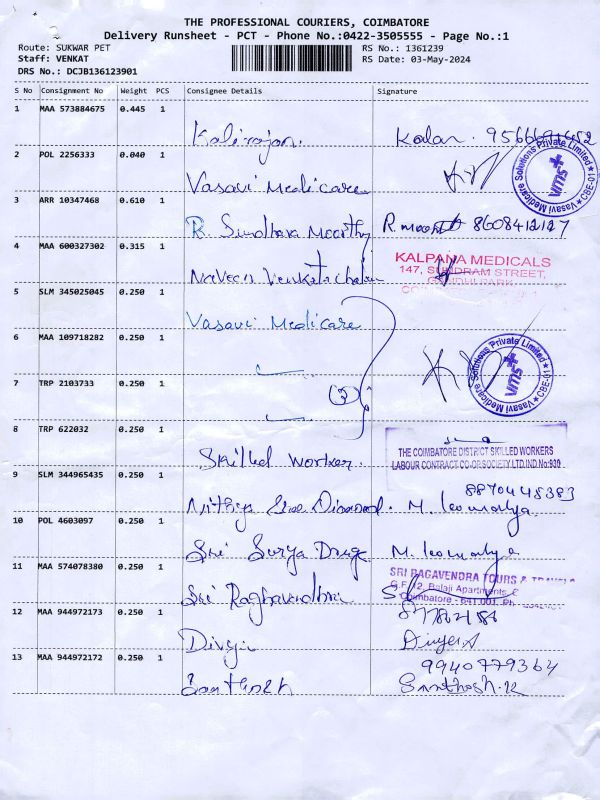 THE PROFESSIONAL COURIERS, COIMBATORE
Delivery Runsheet - PCT - Phone No.:0422-3505555 - Page No.:1
Route: SUKWAR PET
RS No.: 1361239
Staff: VENKAT
RS Date: 03-May-2024
DRS No.: DCJB136123901
S No Consignment No Weight PCS Consignee Details Signature
1 MAA 573884675 0.445 1
Kalirajan. Kalar.
2 POL 2256333 0.040 1
Vasavi Medicare
Vasavi Medicare Solutions Private Limited ★ CBE-01 ★
vms
3 ARR 10347468 0.610 1
R. Sundhara Moorthy R. 8608412127
4 MAA 600327302 0.315 1
KALPANA MEDICALS
147, SUNDRAM STREET,
Naveen Venkatachalam
5 SLM 345025045 0.250 1
Vasavi Medicare
6 MAA 109718282 0.250 1
Vasavi Medicare Solutions Private Limited ★ CBE-01 ★
vms
7 TRP 2103733 0.250 1
(3)
8 TRP 622032 0.250 1
THE COIMBATORE DISTRICT SKILLED WORKERS
LABOUR CONTRACT CO-OP.SOCIETY.LTD.IND.No:930
Skilled Worker
9 SLM 344965435 0.250 1
8870448383
Nithya M.
10 POL 4603097 0.250 1
Sri Surya Drugs M.
11 MAA 574078380 0.250 1
SRI RAGAVENDRA TOURS & TRAVELS
G.F.12, Balaji Apartments,
Coimbatore - 641 001. Ph.
Sri Raghavendra
12 MAA 944972173 0.250 1
Divya
13 MAA 944972172 0.250 1
9940779364
Santhosh Santhosh.K